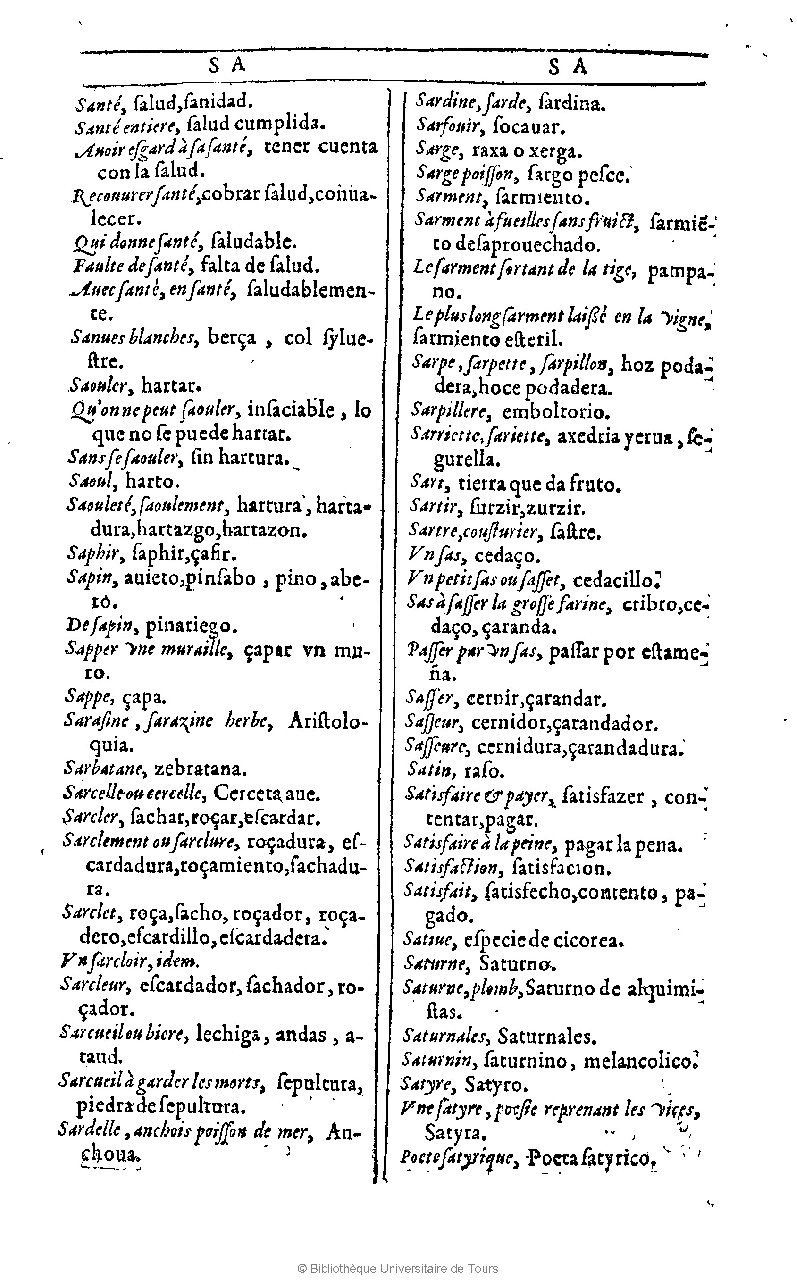 S A
Santé, ſalud,ſanidad.
Santé entiere, ſalud cumplida.
Auoir eſgard à ſa ſanté, tener cuenta
con la ſalud.
Recouurer ſanté,cobrar ſalud,conua-
lecer.
Qui donne ſanté, ſaludable.
Faulte de ſanté, falta de ſalud.
Auec ſanté, en ſanté, ſaludablemen-
te.
Sanues blanches, berça , col ſylue-
ſtre.
Saouler, hartar.
Qu'on ne peut ſaouler, inſaciable , lo
que no ſe puede hartar.
Sans ſe ſaouler, ſin hartura.
Saoul, harto.
Saouleté, ſaoulement, hartura, harta-
dura,hartazgo,hartazon.
Saphir, ſaphir,çafir.
Sapin, auieto,pinſabo , pino, abe-
to.
De ſapin, pinariego.
Sapper vne muraille, çapar vn mu-
ro.
Sappe, çapa.
Saraſine , ſarazine herbe, Ariſtolo-
quia.
Sarbatane, zebratana.
Sarcelle ou cercelle, Cerceta aue.
Sarcler, ſachar,roçar,eſcardar.
Sarclement ou ſarclure, roçadura, eſ-
cardadura,roçamiento,ſachadu-
ra.
Sarclet, roça,ſacho, roçador, roça-
dero,eſcardillo,eſcardadera.
Vn ſarcloir, idem.
Sarcleur, eſcardador, ſachador, ro-
çador.
Sarcueil ou biere, lechiga, andas , a-
taud.
Sarcueil à garder les morts, ſepultura,
piedra de ſepultura.
Sardelle , anchois poiſſon de mer, An-
choua.
S A
Sardine, ſarde, ſardina.
Sarfouir, ſocauar.
Sarge, raxa o xerga.
Sarge poiſſon, ſargo peſce.
Sarment, ſarmiento.
Sarment à fueilles ſans fruict, ſarmiē-
to deſaprouechado.
Le ſarment ſortant de la tige, pampa-
no.
Le plus long ſarment laiſſé en la vigne,
ſarmiento eſteril.
Sarpe , ſarpette , ſarpillon, hoz poda-
dera,hoce podadera.
Sarpillere, emboltorio.
Sarriette, ſariette, axedria yerua , ſe-
gurella.
Sart, tierra que da fruto.
Sartir, ſurzir,zurzir.
Sartre,couſturier, ſaſtre.
Vn ſas, cedaço.
Vn petit ſas ou ſaſſet, cedacillo.
Sas à ſaſſer la groſſe farine, cribro,ce-
daço, çaranda.
Paſſer par vn ſas, paſſar por eſtame-
ña.
Saſſer, cernir,çarandar.
Saſſeur, cernidor,çarandador.
Saſſeure, cernidura,çarandadura.
Satin, raſo.
Satisfaire & payer, ſatisfazer , con-
tentar,pagar.
Satisfaire à la peine, pagar la pena.
Satisfaction, ſatisfacion.
Satisfait, ſatisfecho,contento , pa-
gado.
Satiue, eſpecie de cicorea.
Saturne, Saturno.
Saturne,plomb, Saturno de alquimi-
ſtas.
Saturnales, Saturnales.
Saturnin, ſaturnino, melancolico.
Satyre, Satyro.
Vne ſatyre , poeſie reprenant les vices,
Satyra.
Poete ſatyrique, Poeta ſatyrico.
© Bibliothèque Universitaire de Tours